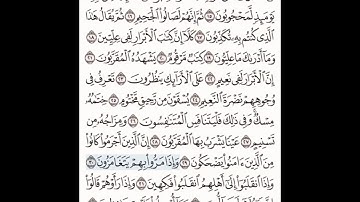 يَوْمَئِذٍ لَّمَحْجُوبُونَ ١٥ ثُمَّ إِنَّهُمْ لَصَالُوا۟ ٱلْجَحِيمِ ١٦ ثُمَّ يُقَالُ هَٰذَا
ٱلَّذِى كُنتُم بِهِۦ تُكَذِّبُونَ ١٧ كَلَّآ إِنَّ كِتَٰبَ ٱلْأَبْرَارِ لَفِى عِلِّيِّينَ ١٨
وَمَآ أَدْرَىٰكَ مَا عِلِّيُّونَ ١٩ كِتَٰبٌ مَّرْقُومٌ ٢٠ يَشْهَدُهُ ٱلْمُقَرَّبُونَ ٢١
إِنَّ ٱلْأَبْرَارَ لَفِى نَعِيمٍ ٢٢ عَلَى ٱلْأَرَآئِكِ يَنظُرُونَ ٢٣ تَعْرِفُ فِى
وُجُوهِهِمْ نَضْرَةَ ٱلنَّعِيمِ ٢٤ يُسْقَوْنَ مِن رَّحِيقٍ مَّخْتُومٍ ٢٥ خِتَٰمُهُۥ
مِسْكٌ وَفِى ذَٰلِكَ فَلْيَتَنَافَسِ ٱلْمُتَنَٰفِسُونَ ٢٦ وَمِزَاجُهُۥ مِن
تَسْنِيمٍ ٢٧ عَيْنًا يَشْرَبُ بِهَا ٱلْمُقَرَّبُونَ ٢٨ إِنَّ ٱلَّذِينَ أَجْرَمُوا۟ كَانُوا۟
مِنَ ٱلَّذِينَ ءَامَنُوا۟ يَضْحَكُونَ ٢٩ وَإِذَا مَرُّوا۟ بِهِمْ يَتَغَامَزُونَ ٣٠
وَإِذَا ٱنقَلَبُوٓا۟ إِلَىٰٓ أَهْلِهِمُ ٱنقَلَبُوا۟ فَكِهِينَ ٣١ وَإِذَا رَأَوْهُمْ قَالُوٓا۟